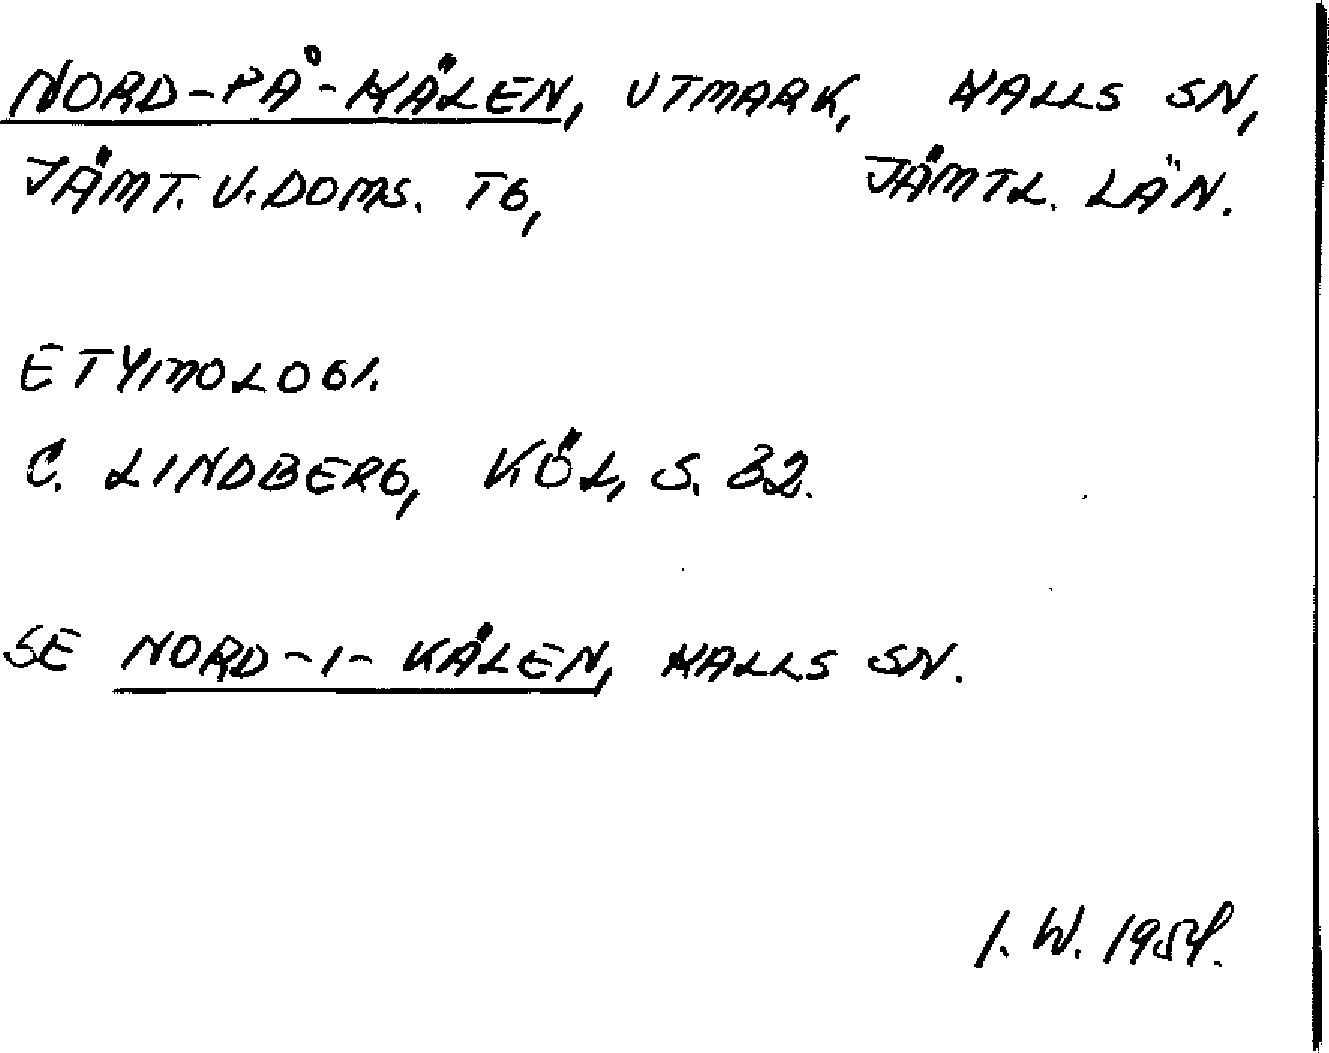 NORD-PÅ-KÄLEN, UTMARK, KALLS SN,
JÄMT. V. DOMS. TG, JÄMTL. LÄN.
ETYMOLOGI.
C. LINDBERG, KÖL, S. 32.
SE NORD-I-KÄLEN, KALLS SN.
I. W. 1954.